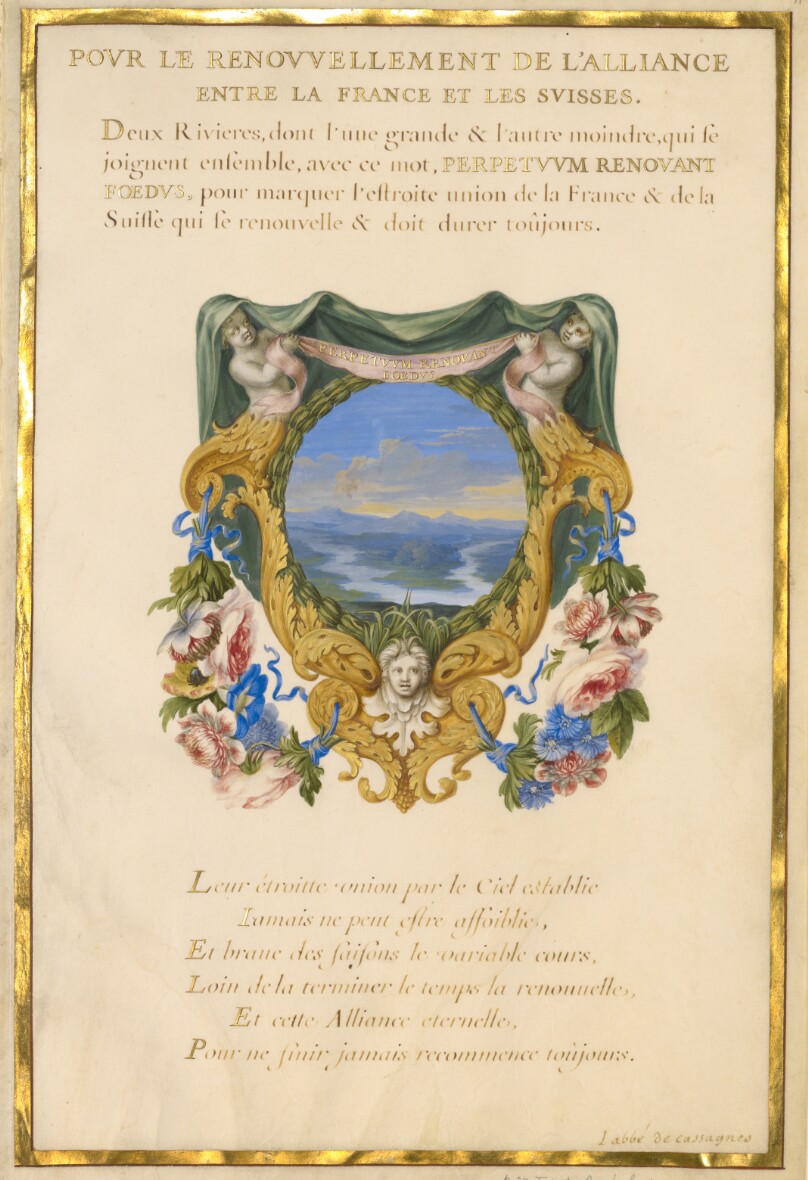 POVR LE RENOVVELLEMENT DE L'ALLIANCE
ENTRE LA FRANCE ET LES SVISSES.
Deux Rivieres, dont l'une grande & l'autre moindre, qui se
joignent ensemble, avec ce mot, PERPETVVM RENOVANT
FOEDVS, pour marquer l'estroite union de la France & de la
Suisse qui se renouvelle & doit durer toûjours.
PERPETVVM RENOVANT
FOEDVS
Leur étroitte vnion par le Ciel establie
Iamais ne peut estre affoiblie,
Et braue des saisons le variable cours,
Loin de la terminer le temps la renouuelle,
Et cette Alliance eternelle,
Pour ne finir jamais recommence toûjours.
l abbé de cassagnes